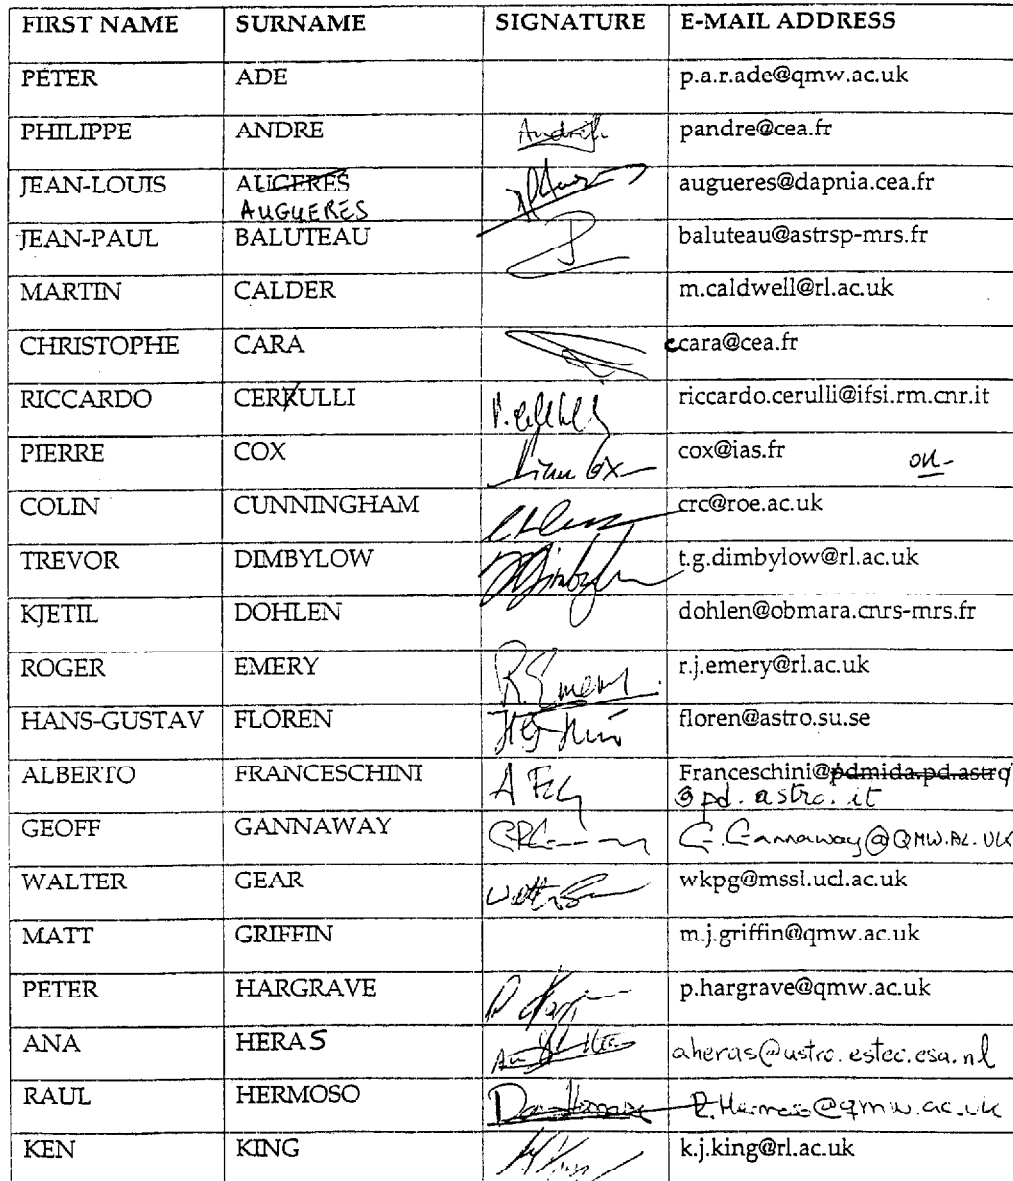 FIRST NAME SURNAME SIGNATURE E-MAIL ADDRESS
PETER ADE p.a.r.ade@qmw.ac.uk
PHILIPPE ANDRE André pandre@cea.fr
JEAN-LOUIS AUGERES augueres@dapnia.cea.fr
AUGUERES
JEAN-PAUL BALUTEAU baluteau@astrsp-mrs.fr
MARTIN CALDER m.caldwell@rl.ac.uk
CHRISTOPHE CARA ccara@cea.fr
RICCARDO CERRULLI riccardo.cerulli@ifsi.rm.cnr.it
PIERRE COX Pierre Cox cox@ias.fr
COLIN CUNNINGHAM crc@roe.ac.uk
TREVOR DIMBYLOW t.g.dimbylow@rl.ac.uk
KJETIL DOHLEN dohlen@obmara.cnrs-mrs.fr
ROGER EMERY R.Emery. r.j.emery@rl.ac.uk
HANS-GUSTAV FLOREN floren@astro.su.se
ALBERTO FRANCESCHINI Franceschini@pdmida.pd.astro
@pd.astro.it
GEOFF GANNAWAY G.Gannaway@QMW.AC.UK
WALTER GEAR wkpg@mssl.ucl.ac.uk
MATT GRIFFIN m.j.griffin@qmw.ac.uk
PETER HARGRAVE p.hargrave@qmw.ac.uk
ANA HERAS aheras@astro.estec.esa.nl
RAUL HERMOSO R.Hermoso@qmw.ac.uk
KEN KING k.j.king@rl.ac.uk